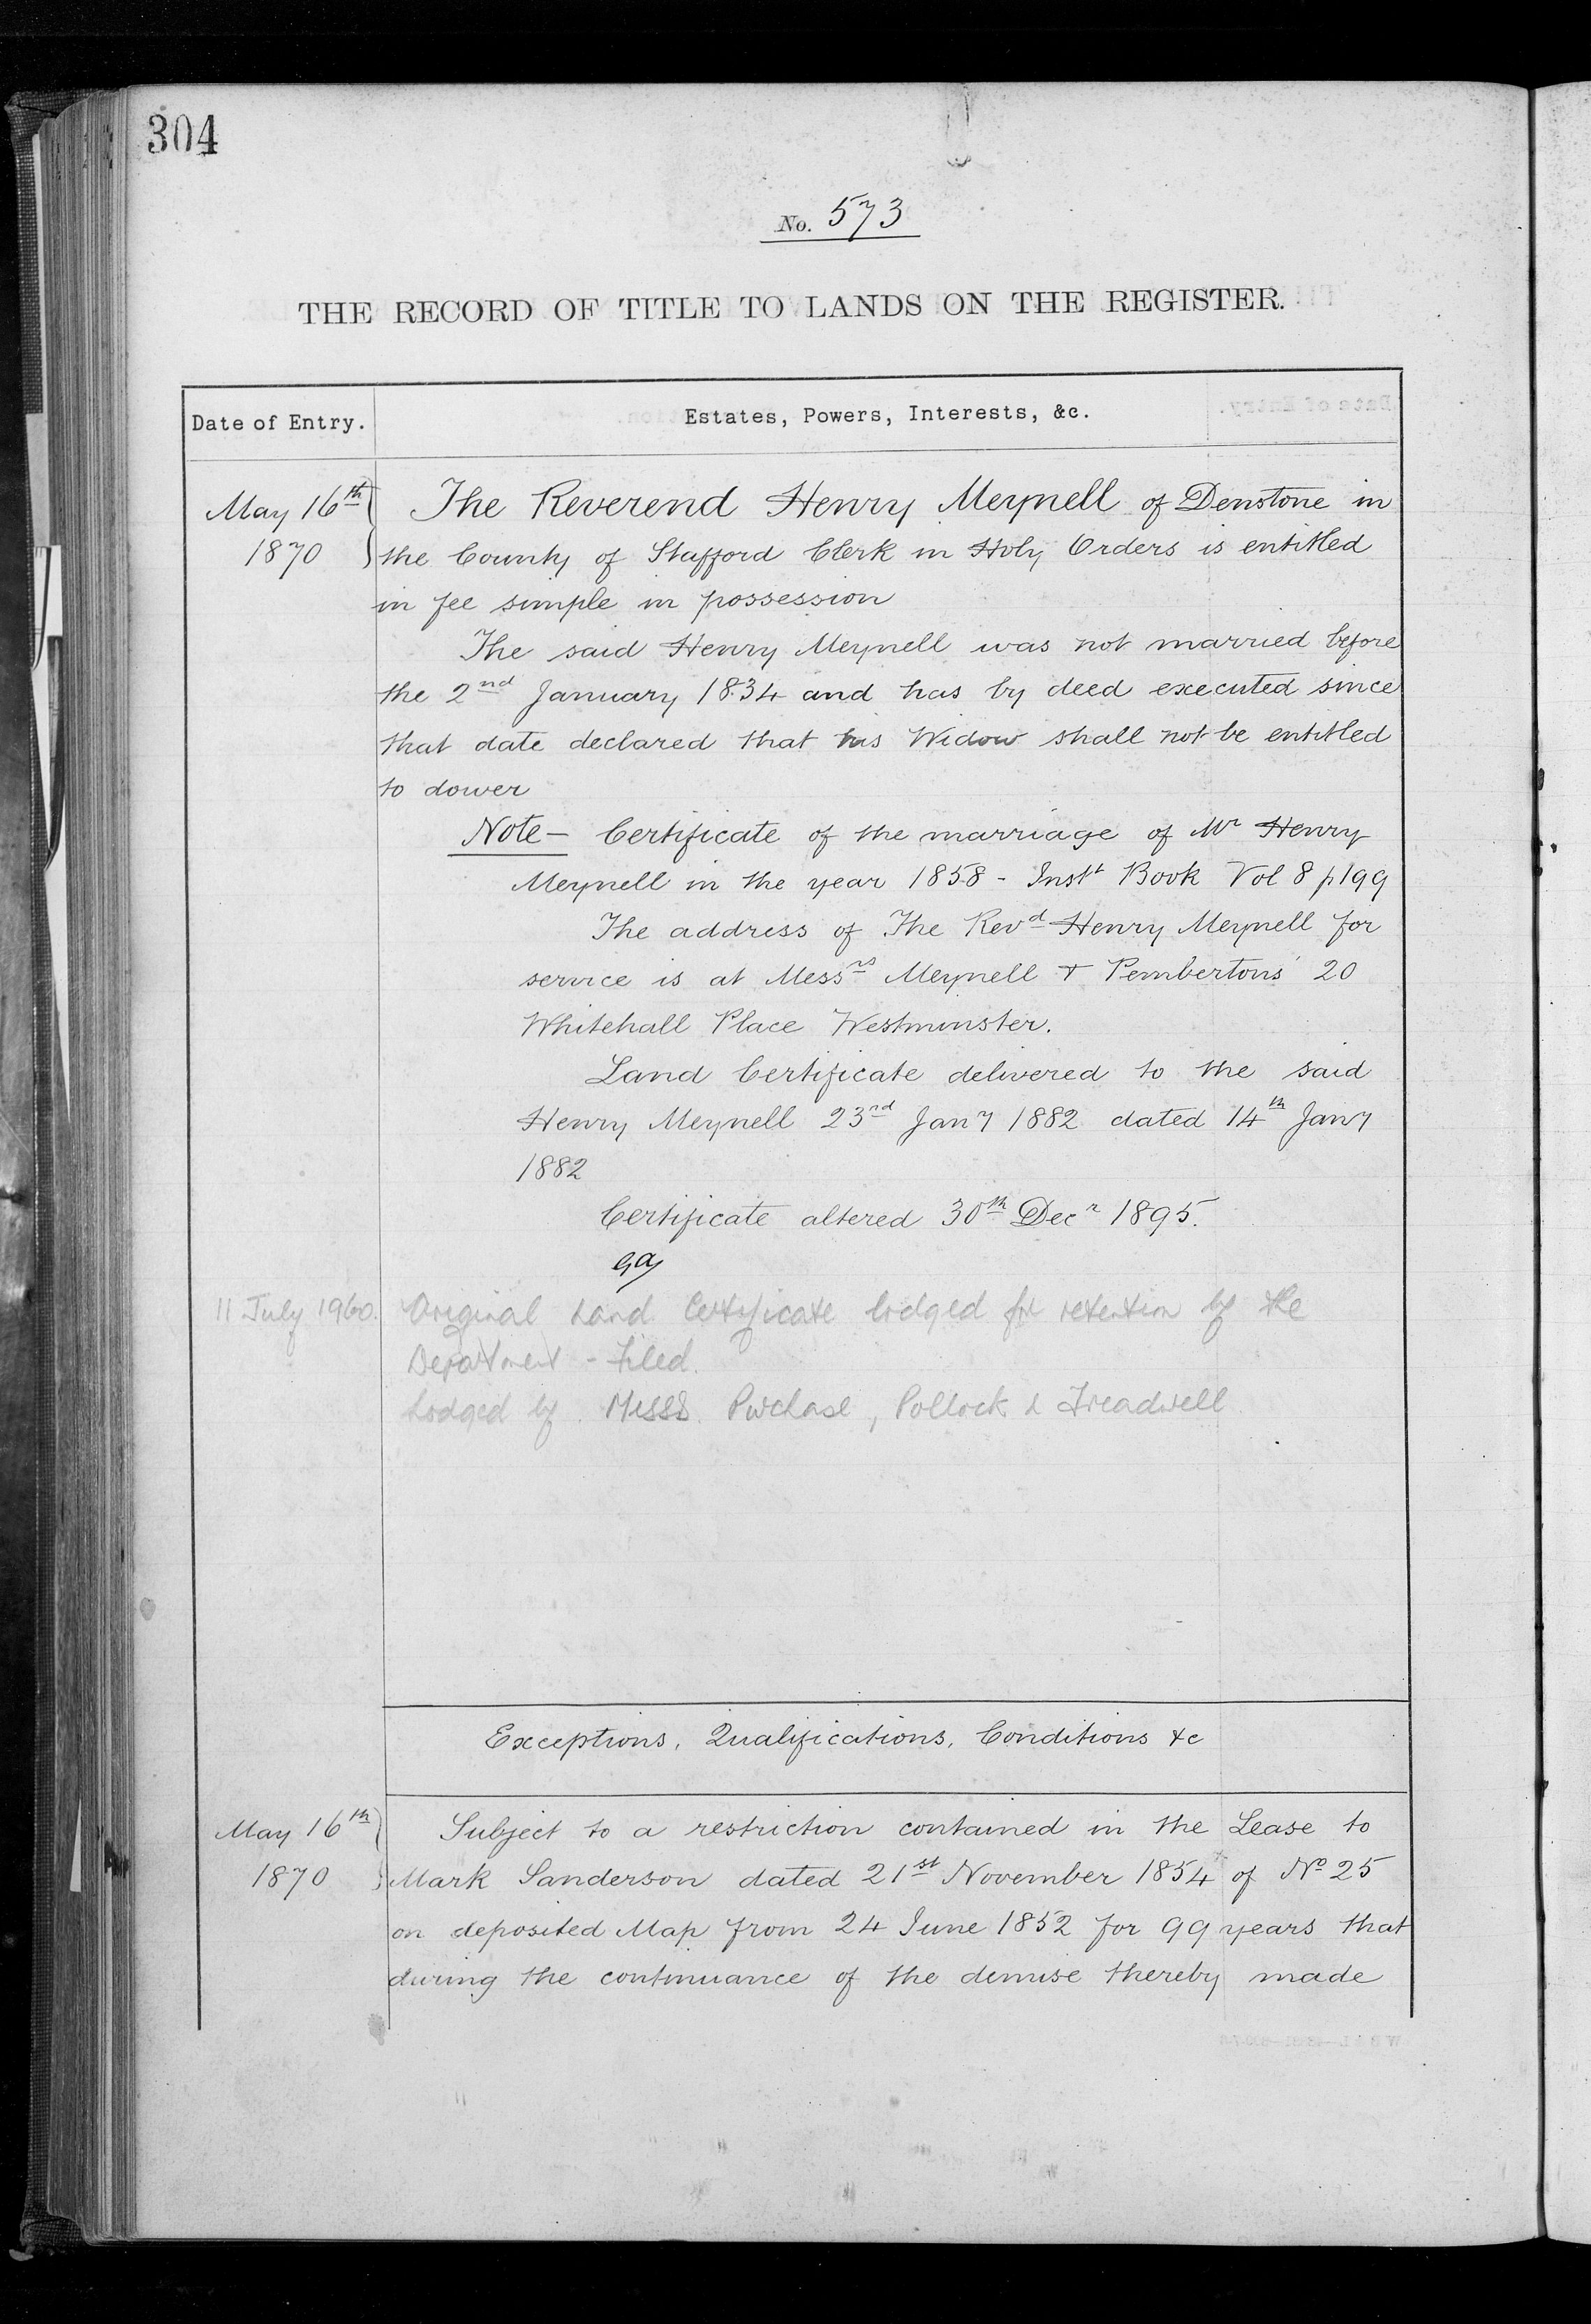 304
No. 573
THE RECORD OF TITLE TO LANDS ON THE REGISTER.
Date of Entry.
Estates, Powers, Interests, &c.
May 16th The Reverend Henry Meynell of Denstone in
1870 the County of Stafford Clerk in Holy Orders is entitled
in fee simple in possession
The said Henry Meynell was not married before
the 2nd January 1834 and has by deed executed since
that date declared that his Widow shall not be entitled
to dower
Note — Certificate of the marriage of Mr Henry
Meynell in the year 1858 - Instt Book Vol 8 p199
The address of The Revd Henry Meynell for
service is at Messrs Meynell & Pembertons' 20
Whitehall Place Westminster.
Land Certificate delivered to the said
Henry Meynell 23rd Jany 1882 dated 14th Jany
1882
Certificate altered 30th Decr 1895.
11 July 1960. Original Land Certificate lodged for retention by the
Department - Filed.
Lodged by Messrs. Purchase, Pollock & Treadwell
Exceptions, Qualifications, Conditions &c
May 16th Subject to a restriction contained in the Lease to
1870 Mark Sanderson dated 21st November 1854 of No 25
on deposited Map from 24 June 1852 for 99 years that
during the continuance of the demise thereby made